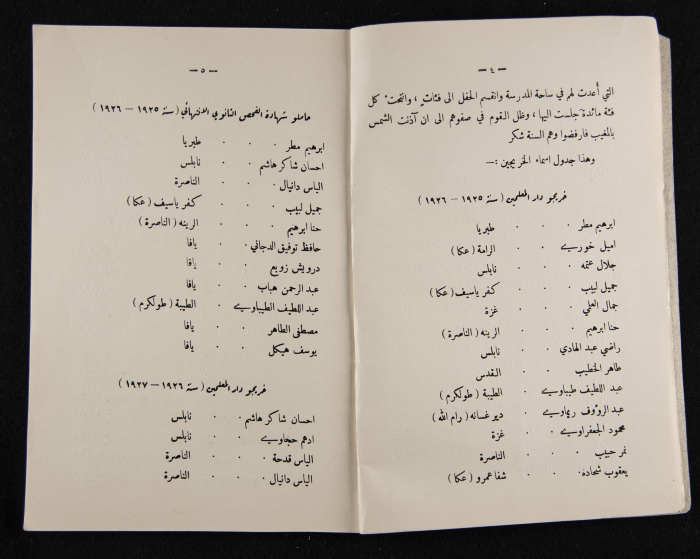 — ٤ —
التي أعدت لهم في ساحة المدرسة وانقسم الحفل الى فئات، وانتحت كل
فئة مائدة جلست اليها، وظل القوم في صفوهم الى ان آذنت الشمس
بالمغيب فارفضوا وهم السنة شكر
وهذا جدول اسماء الخريجين :—
خريجو دار المعلمين ( سنة ١٩٢٥ — ١٩٢٦ )
ابرهيم مطر . . . طبريا
اميل خوري . . الرامة ( عكا )
جلال عتمه . . نابلس
جميل لبيب . . كفر ياسيف ( عكا )
جمال العلمي . . غزة
حنا ابرهيم . . الرينه ( الناصرة )
راضي عبد الهادي . . نابلس
طاهر الخطيب . . القدس
عبد اللطيف طيباوي . الطيبة ( طولكرم )
عبد الرؤوف ريماوي . دير غسانه ( رام الله )
محمود الجعفراوي . . غزة
نمر حبيب . . الناصرة
يعقوب شحاده . . شفا عمرو ( عكا )
— ٥ —
حاملو شهادة الفحص الثانوي الانتهائي ( سنة ١٩٢٥ — ١٩٢٦ )
ابرهيم مطر . . . طبريا
احسان شاكر هاشم . . نابلس
الياس دانيال . . الناصرة
جميل لبيب . . . كفر ياسيف ( عكا )
حنا ابرهيم . . الرينه ( الناصرة )
حافظ توفيق الدجاني . . يافا
درويش زويع . . يافا
عبد الرحمن هباب . . يافا
عبد اللطيف الطيباوي . الطيبة ( طولكرم )
مصطفى الطاهر . . يافا
يوسف هيكل . . يافا
خريجو دار المعلمين ( سنة ١٩٢٦ — ١٩٢٧ )
احسان شاكر هاشم . . نابلس
ادهم حجاوي . . نابلس
الياس قدحة . . الناصرة
الياس دانيال . . الناصرة